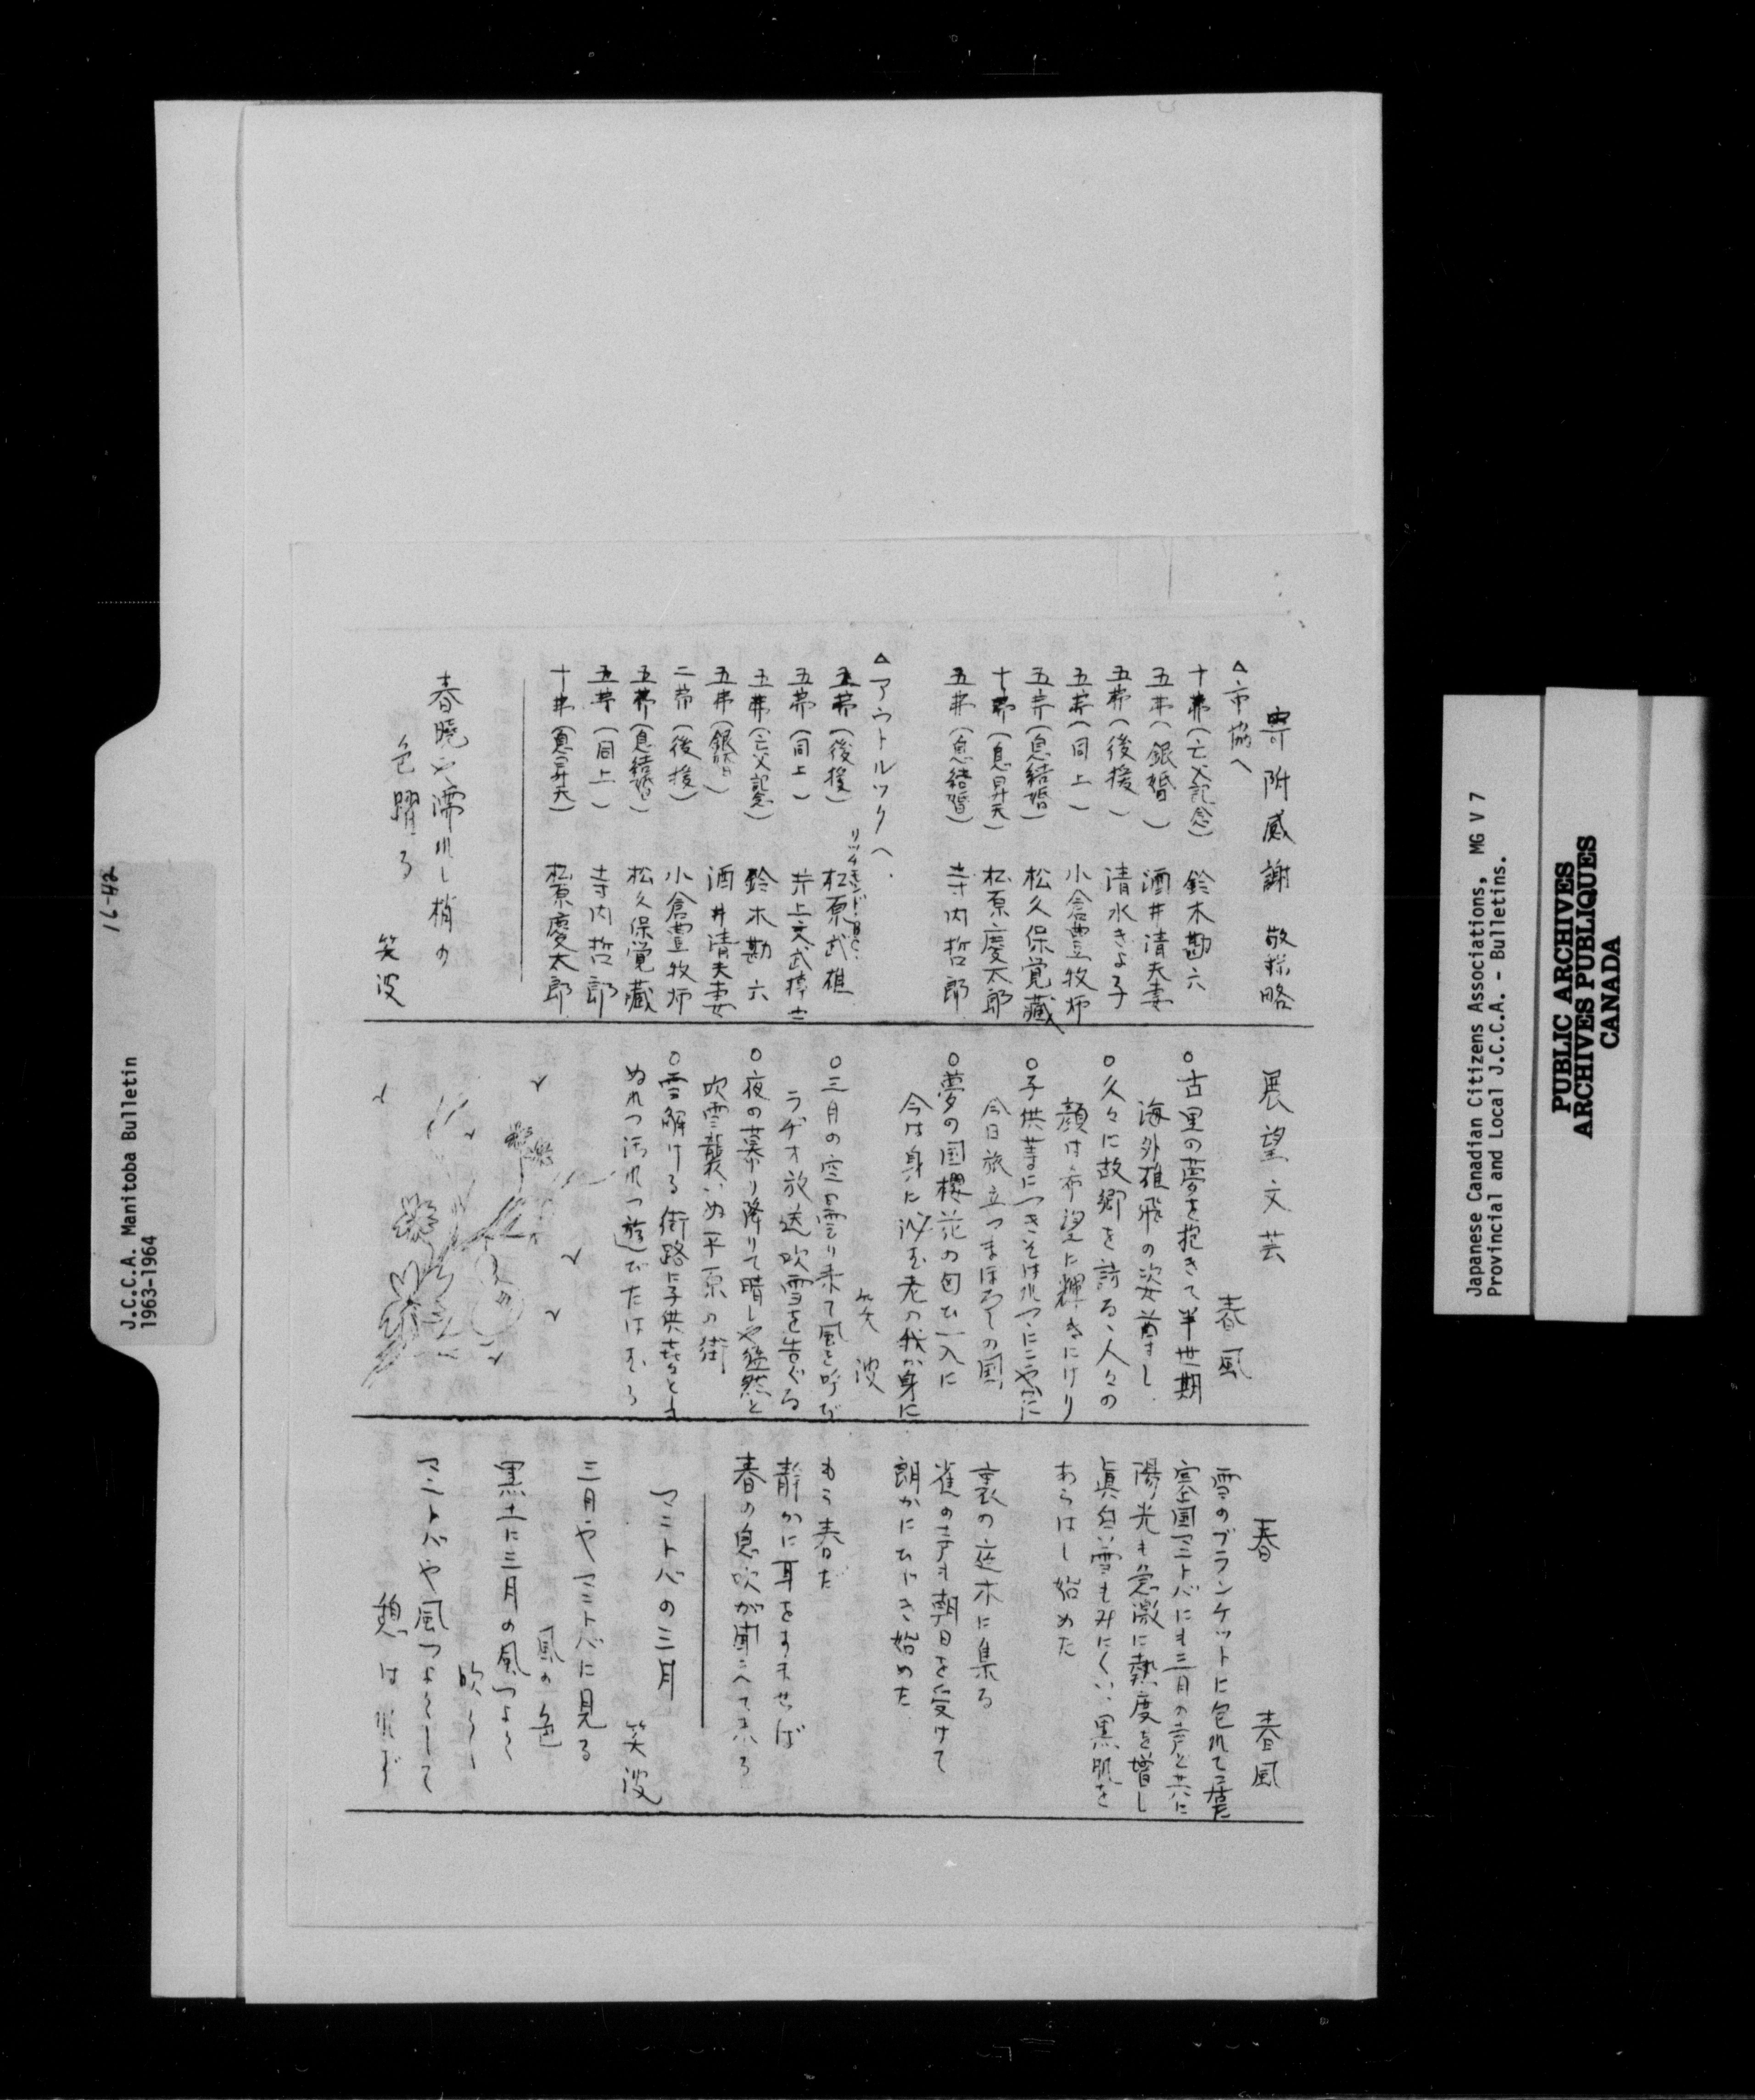 寄附感謝 敬称略
△市協へ
十弗(亡父記念) 鈴木勘六
五弗(銀婚) 酒井清夫妻
五弗(後援) 清水きよ子
五弗(同上) 小倉豊牧師
五弗(息結婚) 松久保覚藏
十弗(息昇天) 松原慶太郎
五弗(息結婚) 寺内哲郎
△アウトルックへ
リッチモンド・B.C.
五弗(後援) 松原武雄
五弗(同上) 井上文武博士
五弗(亡父記念) 鈴木勘六
五弗(銀婚) 酒井清夫妻
二弗(後援) 小倉豊牧師
五弗(息結婚) 松久保覚藏
五弗(同上) 寺内哲郎
十弗(息昇天) 松原慶太郎
春暁や濡れし梢の
色曜ろ
笑波
展望文芸
春風
○古里の夢を抱きて半世期
海外雄飛の姿尊し
○久々に故郷を訪る、人々の
顔は希望に輝きにけり
○子供等につきそはれつ、にこやかに
今日旅立つまほろしの国
○夢の国櫻花の匂ひ一入に
今は身に沁む老の我が身に
笑波
○三月の空曇り来て風を呼び
ラヂオ放送吹雪を告ぐる
○夜の幕り降りて晴しや猛然と
吹雪襲いぬ平原の街
○雪解ける街路に子供喜々とす
ぬれつ汚れつ遊びたはむる
春 春風
雪のブランケットに包れて居た
寒国マニトバにも三月の声と共に
陽光も急激に熱度を増し
眞白い雪もみにくい黒肌を
あらはし始めた
裏の庭木に集る
雀の声も朝日を受けて
朗かにひびき始めた
もう春だ
静かに耳をすませば
春の息吹が聞こへて来る
マニトバの三月
笑波
三月やマニトバに見る
風の色
黒土に三月の風つよく
吹く
マニトバや風つよくして
憩はれず
J.C.C.A. Manitoba Bulletin
1963-1964
16-42
Japanese Canadian Citizens Associations, MG V 7
Provincial and Local J.C.C.A. - Bulletins.
PUBLIC ARCHIVES
ARCHIVES PUBLIQUES
CANADA